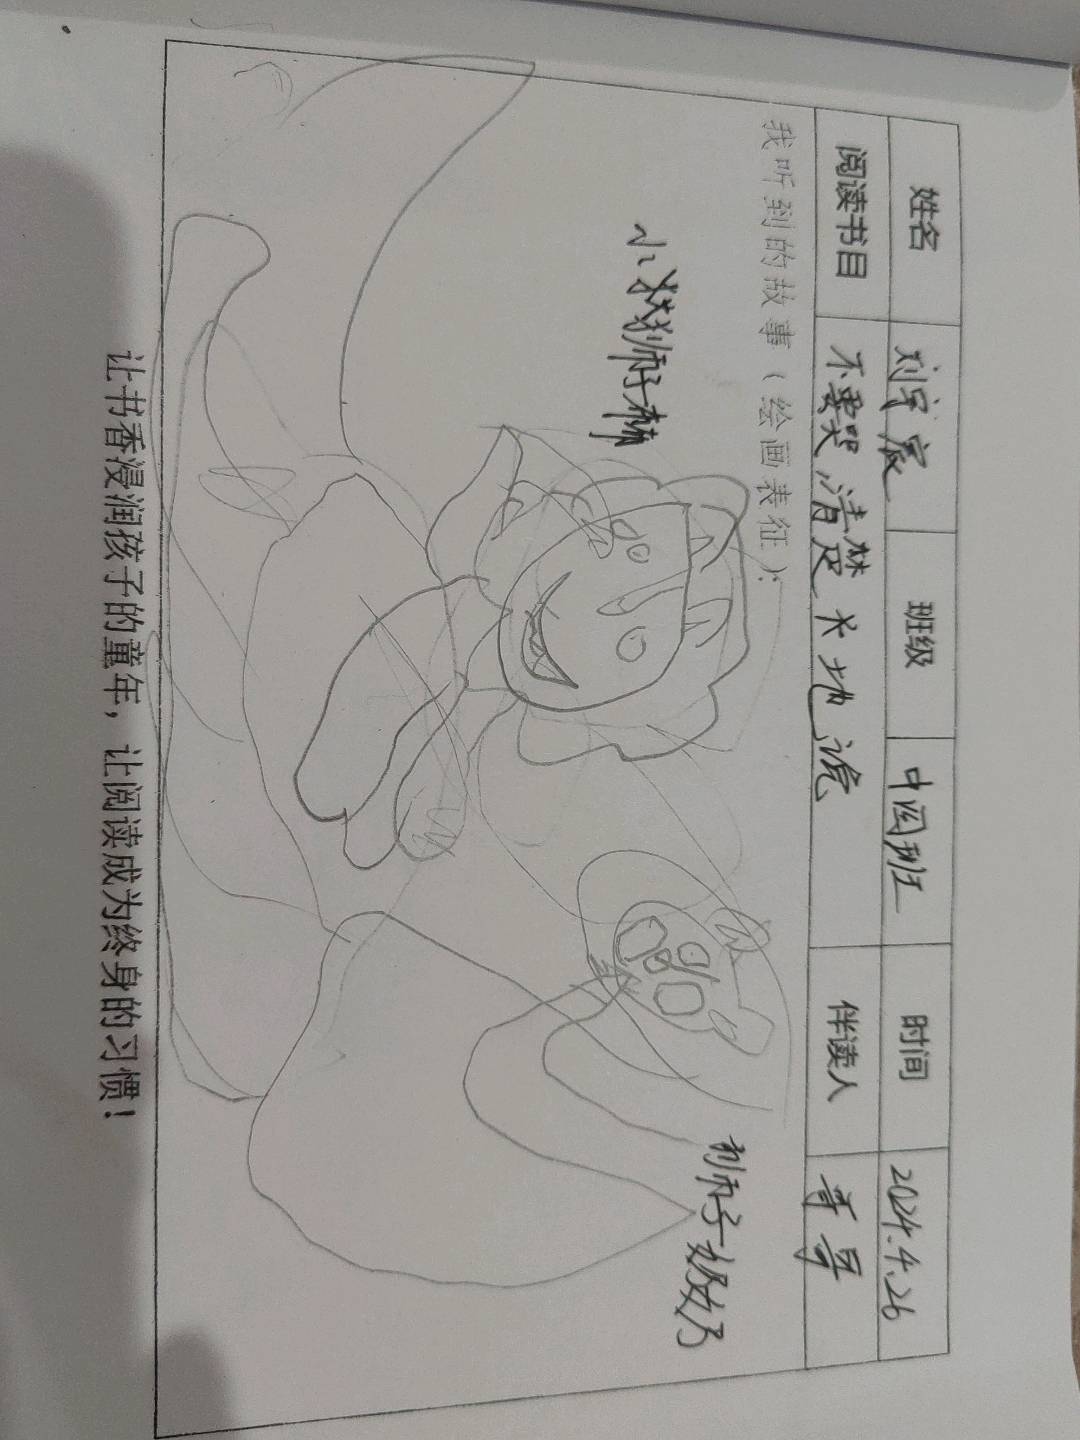 姓名 刘宇宸 班级 中四班 时间 2024.4.26
阅读书目 不要哭,清楚地说 伴读人 哥哥
我听到的故事（绘画表征）：
小 狮子
狮子奶奶
让书香浸润孩子的童年，让阅读成为终身的习惯！